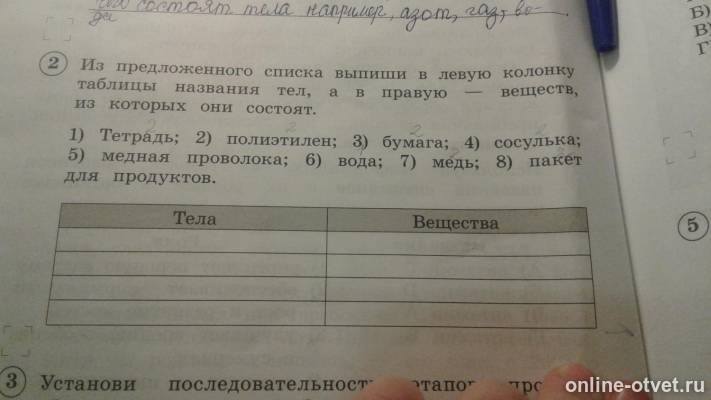 состоят тела например, азот, газ, во-
2 Из предложенного списка выпиши в левую колонку
таблицы названия тел, а в правую — веществ,
из которых они состоят.
1) Тетрадь; 2) полиэтилен; 3) бумага; 4) сосулька;
5) медная проволока; 6) вода; 7) медь; 8) пакет
для продуктов.
Тела Вещества
3 Установи последовательность этапов
Б)
В)
Г
5
online-otvet.ru